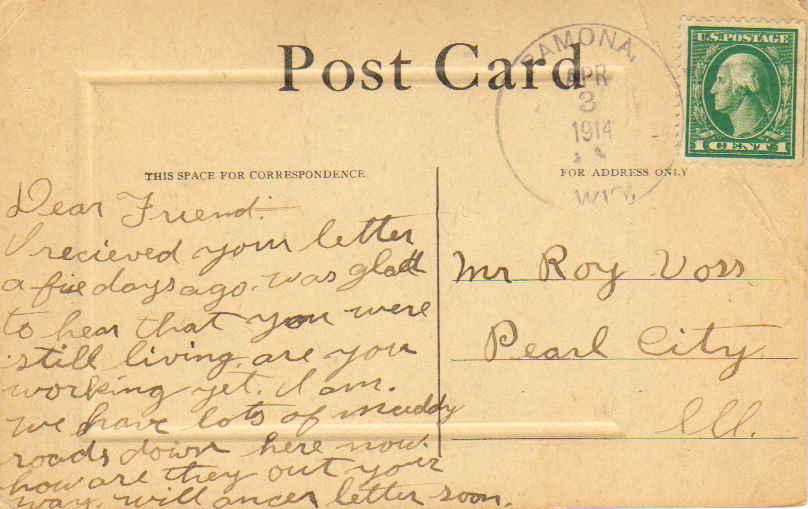 Post Card
RAMONA,
APR
3
1914
WIS.
U.S. POSTAGE
1 CENT 1
THIS SPACE FOR CORRESPONDENCE
FOR ADDRESS ONLY
Dear Friend:
I recieved your letter
a five days ago. was glad
to hear that you were
still living. are you
working yet. I am.
we have lots of muddy
roads down here now.
how are they out your
way. will ancer letter soon.
Mr Roy Voss
Pearl City
Ill.